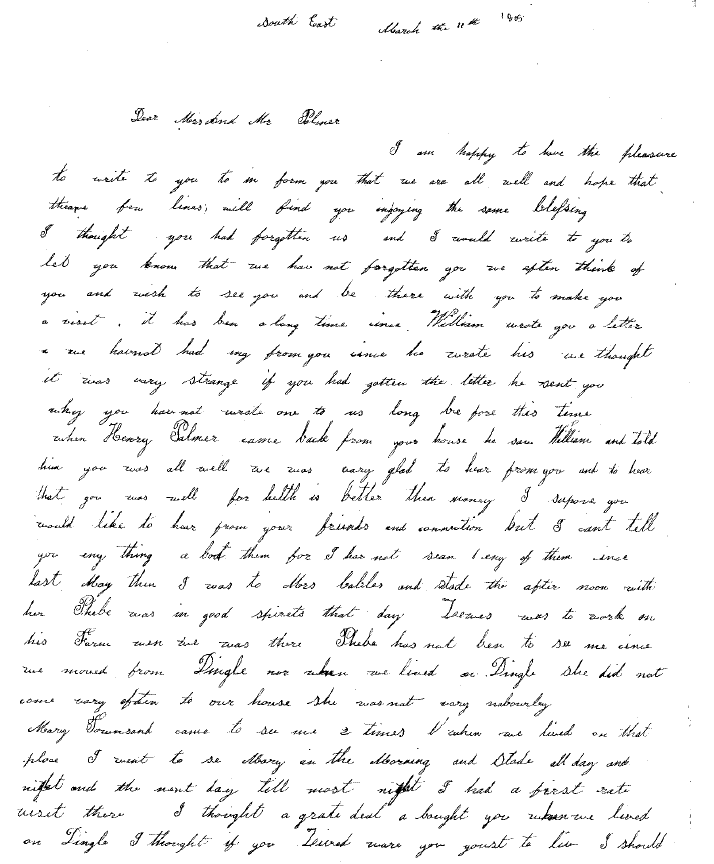 South East March the 11th 18
Dear Mirs And Mr Palmer
I am happy to have the pleasure
to write to you to in form you that we are all well and hope that
thease few lines, will find you injoying the same blessing
I thought you had forgotten us and I would write to you to
let you know that we hav not forgotten you we often think of
you and wish to see you and be there with you to make you
a visit . it has ben a long time since William wrote you a letter
we havnot had eny from you since he wrote his we thought
it was vary strange if you had gotten the letter he sent you
why you havenot wrote one to us long be fore this time
when Henry Palmer came back from your house he saw William and told
him you was all well we was vary glad to hear from you and to hear
that you was well for helth is better then money I supose you
would like to hear from your friends and connection but I cant tell
you eny thing a bout them for I hav not sean eny of them since
last May then I was to Mrs and stade the after noon with
her Phebe was in good spirets that day was to work on
his Farm wen we was there Phebe has not ben to see me since
we moved from Dingle nor when we lived on Dingle she did not
come vary often to our house she wasnot vary nabourley
Mary Townsand came to see me 2 times when we lived on that
place I went to se Mary in the Morning and Stade all day and
night and the next day till most night I had a first rate
viset there I thought a grate deal a bought you when we lived
on Dingle I thought if you ware you youst to liv I should